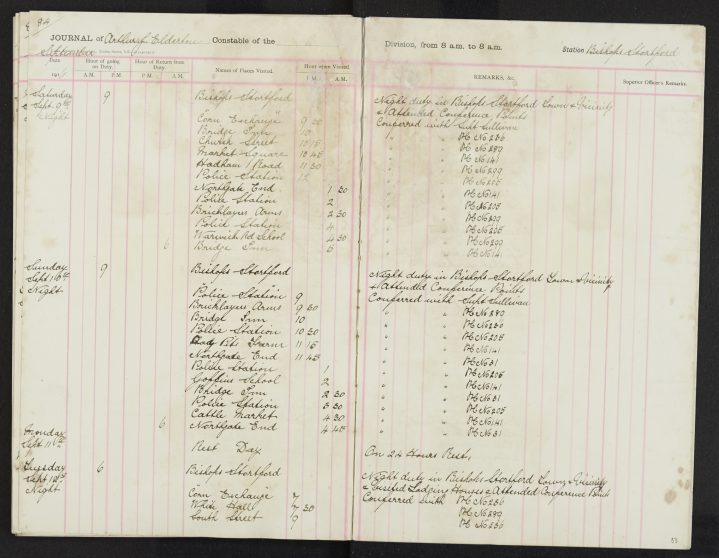 94
JOURNAL of Arthur Elderton Constable of the Division, from 8 a.m. to 8 a.m. Station Bishops Stortford
September
Date Hour of going on Duty. Hour of Return from Duty. Names of Places Visited. Hour when Visited. REMARKS, &c. Superior Officer's Remarks.
191 A.M. P.M. A.M. P.M. P.M. A.M.
Saturday 9 Bishops Stortford Night duty in Bishops Stortford Town & Vicinity
Sept 9th & Attended Conference Points
Night Corn Exchange 9 Conferred with Supt Sullivan
Bridge Inn 10 " " PC No 236
Church Street 10 15 " " PC No 289
Market Square 10 45 " " PC No 141
Hadham Road 11 30 " " PC No 209
Police Station 12 " " PC No 205
Northgate End 1 30 " " PC No 141
Police Station 2 " " PC No 205
Bricklayers Arms 2 30 " " PC No 209
Police Station 4 " " PC No 205
Warwick Rd School 4 30 " " PC No 209
6 Bridge Inn 5 " " PC No 141
Sunday 9 Bishops Stortford Night duty in Bishops Stortford Town & Vicinity
Sept 10th & Attended Conference Points
Night Police Station 9 Conferred with Supt Sullivan
Bricklayers Arms 9 30 " " PC No 289
Bridge Inn 10 " " PC No 236
Police Station 10 30 " " PC No 205
Pits Farm 11 15 " " PC No 141
Northgate End 11 45 " " PC No 31
Police Station 1 " " PC No 205
School 2 " " PC No 141
Bridge Inn 2 30 " " PC No 31
Police Station 3 30 " " PC No 205
Cattle Market 4 30 " " PC No 141
6 Northgate End 4 45 " " PC No 31
Monday
Sept 11th Rest Day On 24 Hours Rest
Tuesday 6 Bishops Stortford Night duty in Bishops Stortford Town & Vicinity
Sept 12th & Visited Lodging Houses & Attended Conference Points
Night Corn Exchange 7 Conferred with PC No 236
White Hall 7 30 " " PC No 289
South Street 9 " " PC No 236
53